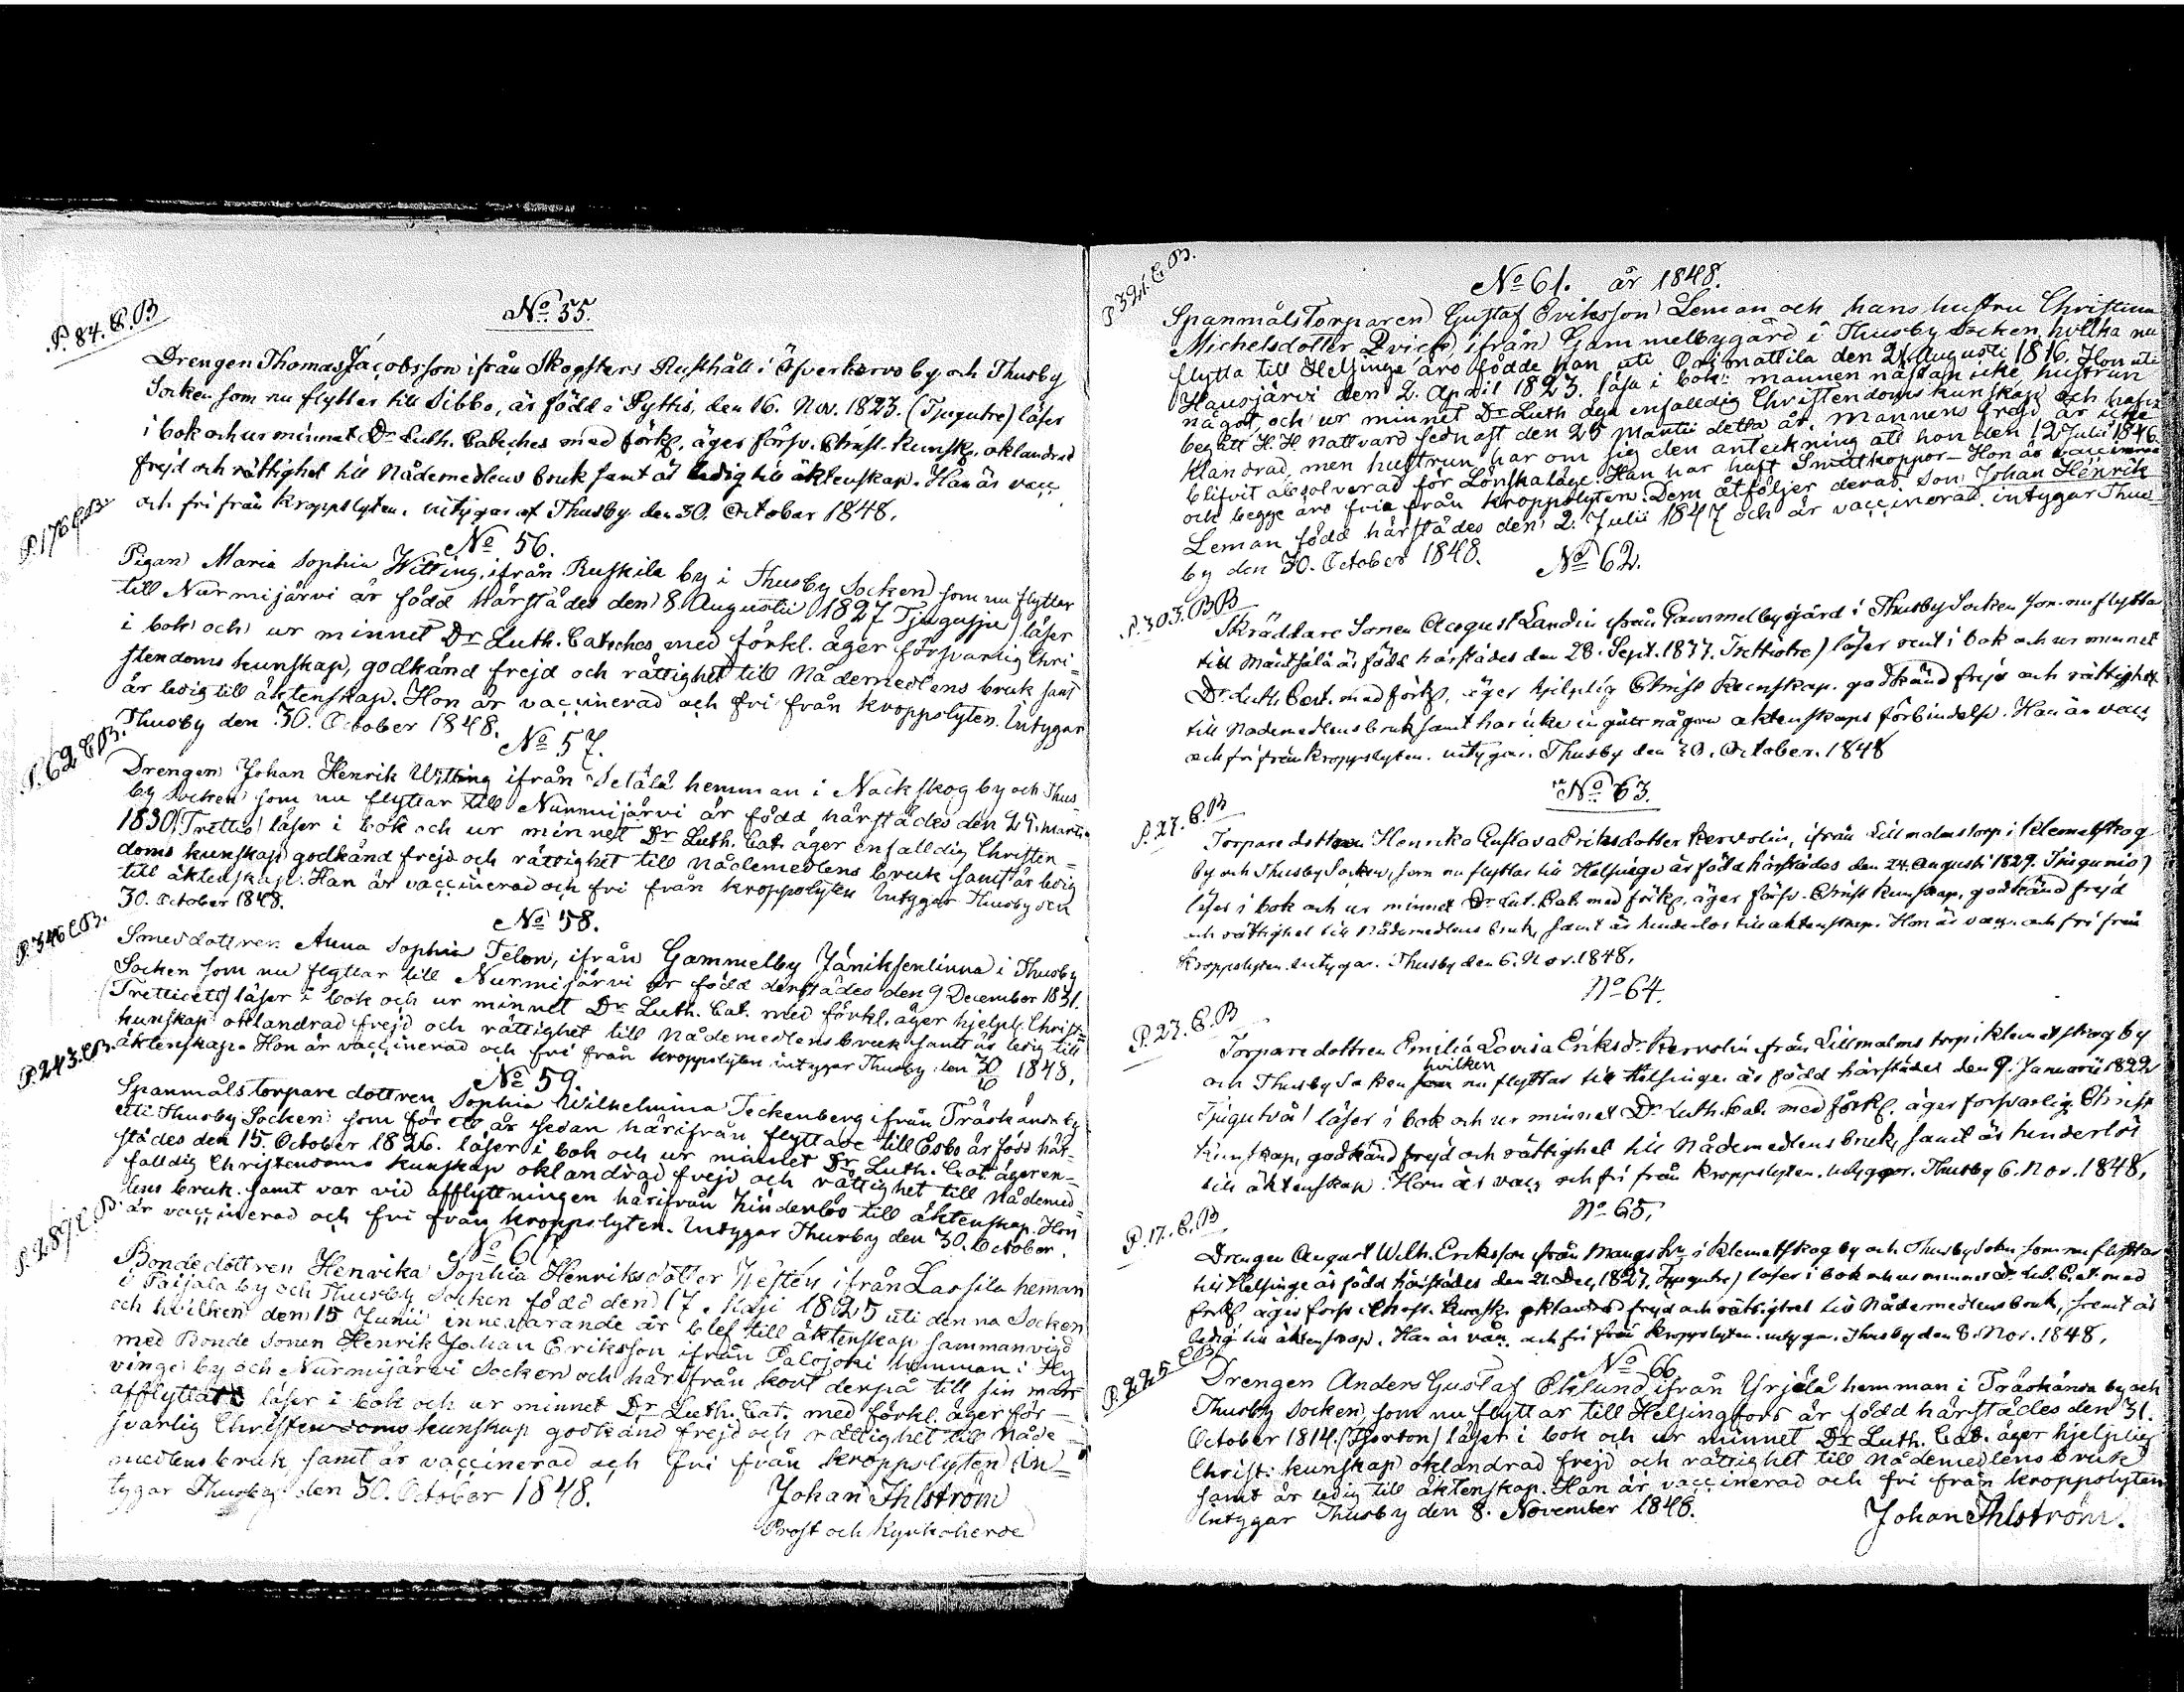 P. 84. C. B
No 55.
Drengen Thomas Jacobsson ifrån Skogsters Rusthåll i Öfverkervo by och Thusby
Socken som nu flyttar till Sibbo, är född i Pyttis, den 16. Nov. 1823. (Tjugutre) läser
i bok och ur minnet Dr. Luth. Cateches med förkl. äger försv. Christ. kunsk. oklandrad
frejd och rättighet till Nådemedlens bruk samt är ledig till äktenskap. Han är vacc.
och fri från kroppslyten. intygar af Thusby den 30. October 1848.
P. 176 C. B.
No 56.
Pigan Maria Sophia Witting, ifrån Ruskila by i Thusby Socken som nu flyttar
till Nurmijärvi är född härstädes den 8 Augustii 1827 Tjugusju) läser
i bok och ur minnet Dr. Luth. Cateches med förkl. äger försvarlig Chri-
stendoms kunskap, godkänd frejd och rättighet till Nådemedlens bruk samt
är ledig till äktenskap. Hon är vaccinerad och fri från kroppslyten. Intygar
Thusby den 30. October 1848.
P. 62 C. B.
No 57.
Drengen Johan Henrik Witting ifrån Setälä hemman i Nackskog by och Thus-
by socken som nu flyttar till Nurmijärvi är född härstädes den 29. Martii
1830 (Trettio) läser i bok och ur minnet Dr Luth. Cat. äger enfalldig Christen-
doms kunskap godkänd frejd och rättighet till nådemedlens bruk samt är ledig
till äktenskap. Han är vaccinerad och fri från kroppslyten Intygar Thusby den
30. October 1848.
P. 346 C. B.
No 58.
Smedsdottren Anna Sophia Telon, ifrån Gammelby Jäniksenlinna i Thusby
Socken som nu flyttar till Nurmijärvi är född derstädes den 9 December 1831.
(Trettioett) läser i bok och ur minnet Dr Luth. Cat. med förkl. äger hjelpl. Christ-
kunskap oklandrad frejd och rättighet till Nådemedlens bruk samt är ledig till
äktenskap. Hon är vaccinerad och fri från kroppslyten intygar Thusby den 30/10 1848.
P. 243. C. B.
No 59.
Spanmåls torpare dottren Sophia Wilhelmina Teckenberg ifrån Träskända by
uti Thusby Socken som för ett år sedan härifrån flyttade till Esbo är född här-
städes den 15. October 1826. läser i bok och ur minnet Dr Luth. Cat. äger en-
falldig Christendoms kunskap oklandrad frejd och rättighet till Nådemed-
lens bruk samt var vid afflyttningen härifrån hinderlös till äktenskap. Hon
är vaccinerad och fri från kroppslyten. Intygar Thusby den 30. October.
P. 289 C. B.
No 60.
Bondedottren Henrika Sophia Henriksdotter ifrån Lassila heman
i Paijala by och Thusby socken född den 17. Maji 1825 uti denna Socken
och hvilken den 15 Junii innevarande år blef till äktenskap sammanvigd
med Bonde Sonen Henrik Johan Eriksson ifrån Palojoki hemman i Hy-
vinge by och Nurmijärvi Socken och härifrån kort derpå till sin man
afflyttat läser i bok och ur minnet Dr Luth. Cat. med förkl. äger för-
svarlig Christendoms kunskap godkänd frejd och rättighet till Nåde-
medlens bruk, samt är vaccinerad och fri från kroppslyten In-
tygar Thusby den 30. October 1848.
Johan Ihlström
Prost och Kyrkoherde
P. 321. C. B.
No 61. år 1848.
Spanmåls Torparen Gustaf Eriksson Leman och hans hustru Christina
Michelsdotter Qvick, ifrån Gammelbygård i Thusby Socken hvilka nu
flytta till Helsinge äro födde han uti Orimattila den 21 Augusti 1816. Hon uti
Hausjärvi den 2. April 1823. läsa i bok: mannen nästan icke hustrun
något, och ur minnet Dr Luth äga enfalldig Christendoms kunskap och hafva
begått H. H. Nattvard sednast den 25 Martii detta år. Mannens frejd är icke
klandrad, men hustrun har om sig den anteckning att hon den 12 Julii 1846.
blifvit absolverad för Lönskaläge. Han har haft Småttkoppor - Hon är vaccinerad
och begge äro fria från kroppslyten. Dem åtföljer deras son Johan Henrik
Leman född härstädes den 2. Julii 1847 och är vaccinerad. intygar Thus-
by den 30. October 1848.
P. 303. B B
No 62.
Skräddare Sonen August Landin ifrån Gammelbygård i Thusby Socken som nu flytta
till Mäntsälä är född härstädes den 28. Sept. 1837. läser rent i bok och ur minnet
Dr. Luth. Cat. med förkl. äger hjelplig Christ kunskap. godkänd frejd och rättighet
till Nademedlens bruk samt har icke ingått någon aktenskaps förbindelse. Han är vacc.
och fri från kroppslyten. intygar. Thusby den 30. October. 1848
P. 27. C. B
No 63.
Torpare dottren Henrika Gustava Eriksdotter Kervolin, ifrån Lillmalms torp i Klemetskog
by och Thusby Socken, som nu flyttar till Helsinge är född härstädes den 24. Augusti 1829. Tjugunio)
läser i bok och ur minnet Dr. Lut. Cat. med förkl. äger försv. Christ kunskap, godkänd frejd
och rättighet till Nådemedlens bruk, samt är hinderlös till aktenskap. Hon är vacc. och fri från
kroppslyten. intygar. Thusby den 6. Nov. 1848.
P. 27. C. B
No 64.
Torpare dottren Emilia Lovisa Eriksdr. Kervolin ifrån Lillmalms torp i Klemetskog by
och Thusby Socken hvilken nu flyttar till Helsinge är född härstädes den 9. Januarii 1822
Tjugutvå) läser i bok och ur minnet Dr. Luth. Cat. med förkl. äger forsvarlig Christ
kunskap, godkänd frejd och rättighet till Nådemedlens bruk, samt är hinderlös
till äktenskap. Hon är vacc och fri från kroppslyten. intygar. Thusby 6. Nov. 1848.
P. 17. C. B
No 65.
Drengen August Wilh. Eriksson ifrån Mangs i Klemetskog by och Thusby Soken som nu flyttar
till Helsinge är född härstädes den 21. Dec. 1827. läser i bok och ur minnet Dr. Lut. Cat. med
förkl. äger försv. Christ. kunsk. oklandrad frejd och rättighet till Nådemedlens bruk, samt är
ledig till äktenskap. Han är vacc. och fri från kroppslyten. intygar. Thusby den 8. Nov. 1848.
P. 225 C. B
No 66
Drengen Anders Gustaf Eklund ifrån Yrjölä hemman i Träskända by och
Thusby Socken, som nu flyttar till Helsingfors är född härstädes den 31.
October 1814. (Fjorton) läser i bok och ur minnet Dr Luth. Cat. äger hjelplig
Christ: kunskap oklandrad frejd och rättighet till nådemedlens bruk
samt är ledig till äktenskap. Han är vaccinerad och fri från kroppslyten
intygar Thusby den 8. November 1848.
Johan Ihlström.